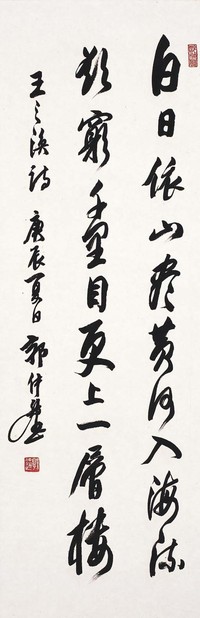 白日依山尽黄河入海流
欲穷千里目更上一层楼
王之涣诗 庚辰夏日 郭仲选